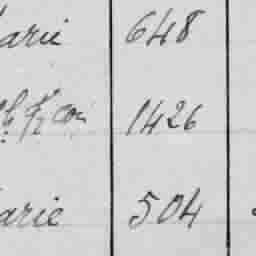 arie 648
1426
arie 504